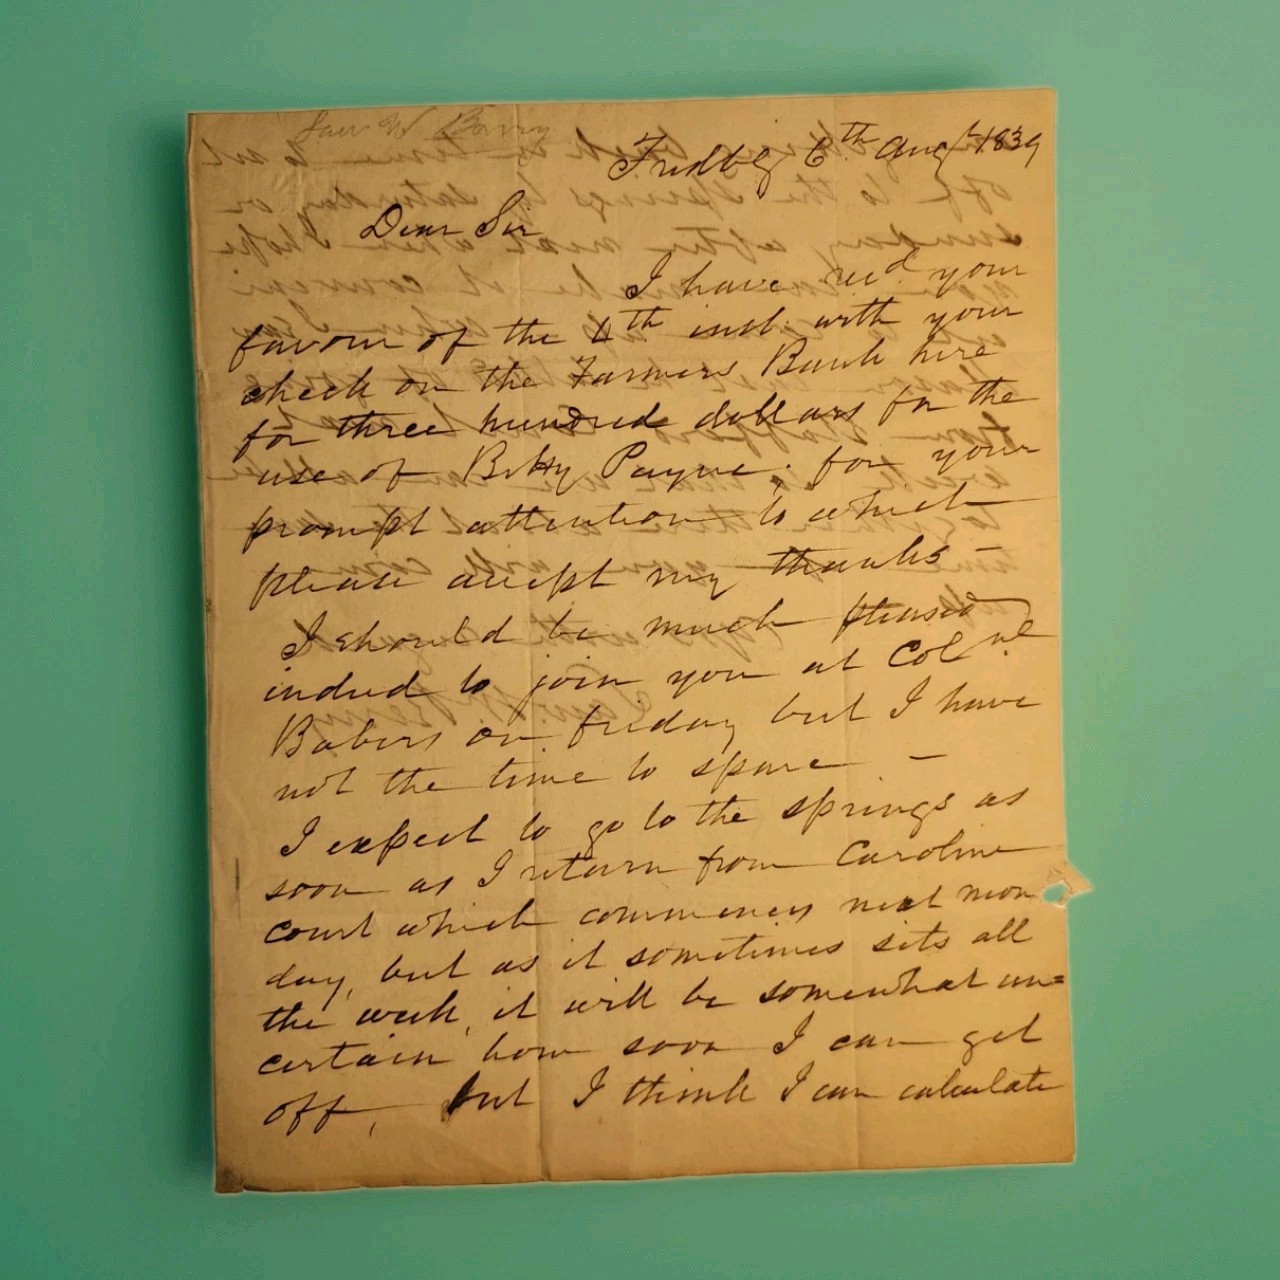 Saml W Berry
Fredbg 6th Augt 1839
Dear Sir
I have recd your
favour of the 4th inst. with your
check on the Farmers Bank here
for three hundred dollars for the
use of Betty Payne. for your
prompt attention to which
please accept my thanks —
I should be much pleased
indeed to join you at Colnl
Babers on friday but I have
not the time to spare —
I expect to go to the springs as
soon as I return from Caroline
court which commences next mon
day, but as it sometimes sits all
the week, it will be somewhat un=
certain how soon I can get
off, but I think I can calculate